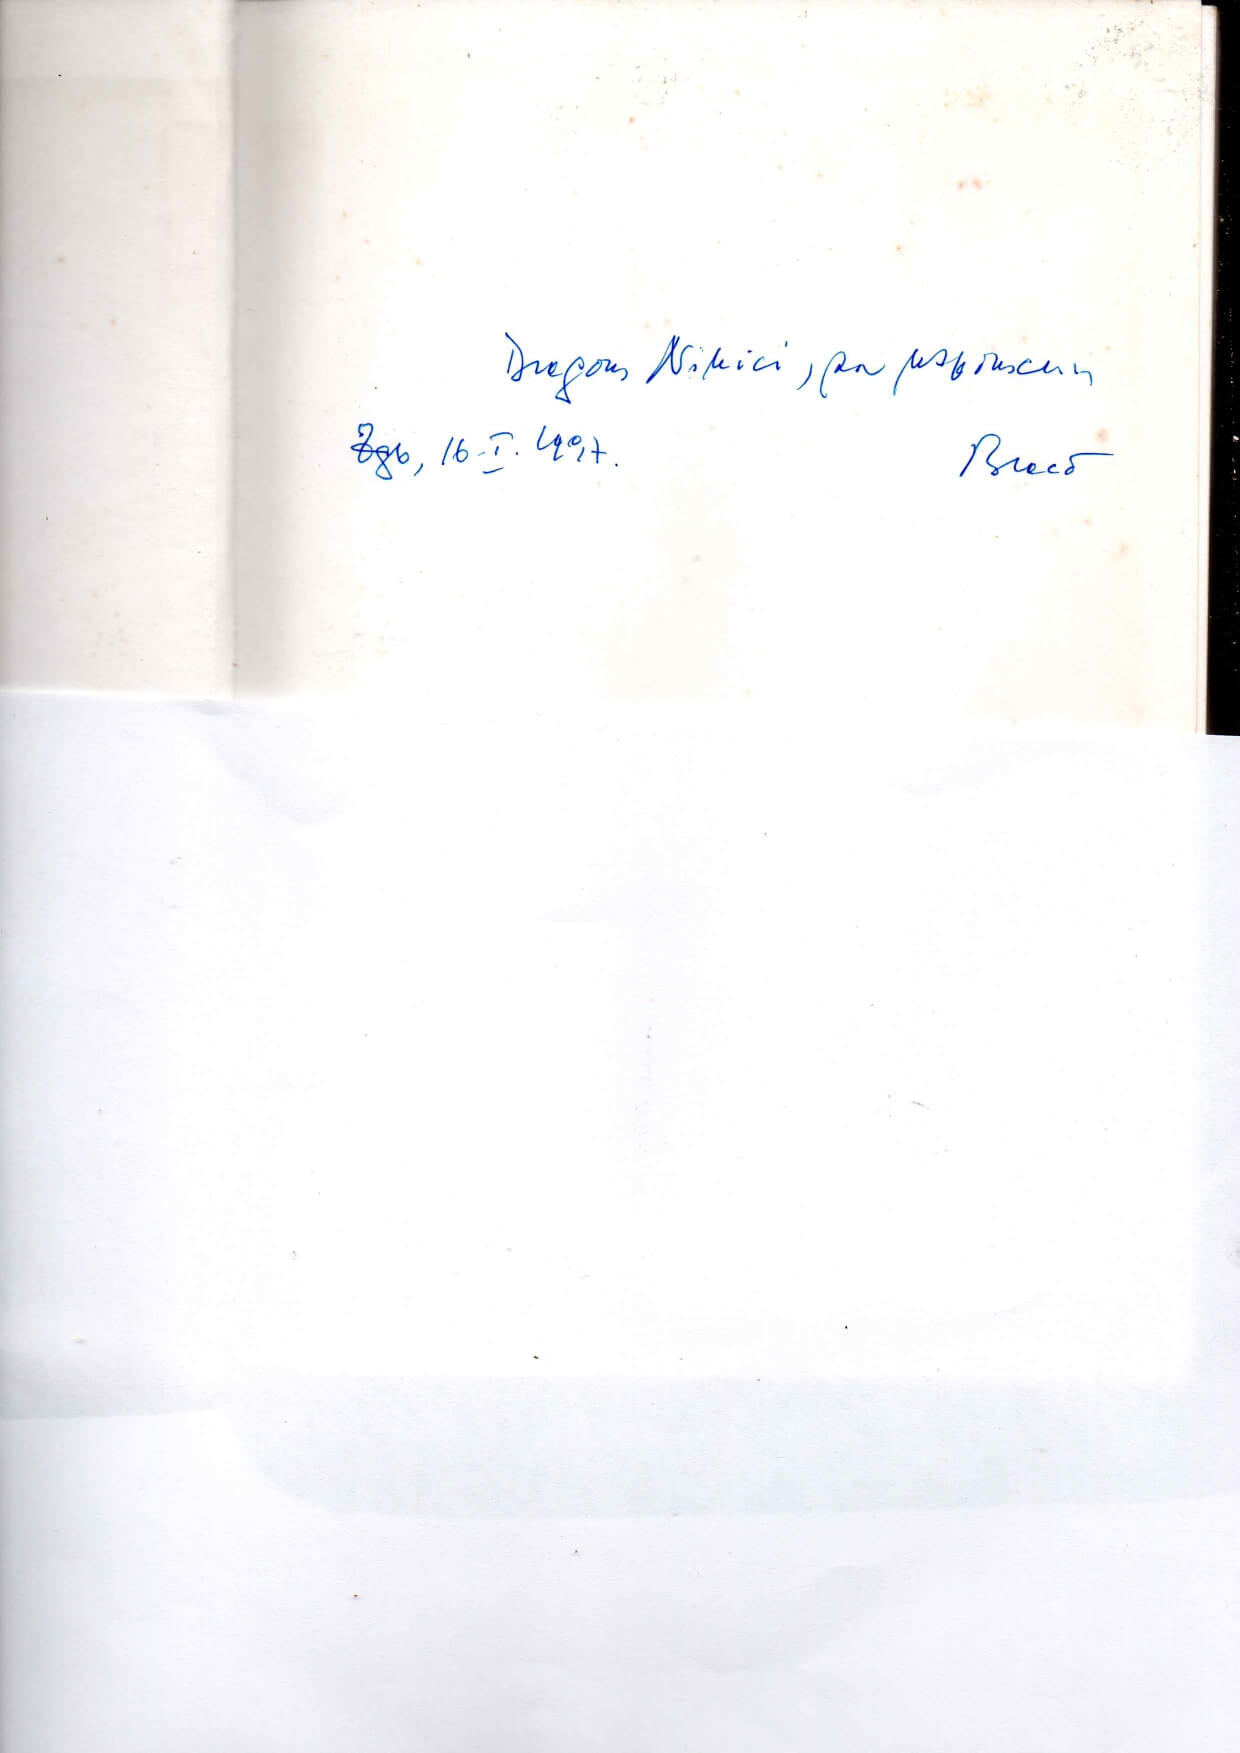 Dragom Nikici, za uspomenu
Zgb, 16.I.1997.
Braco